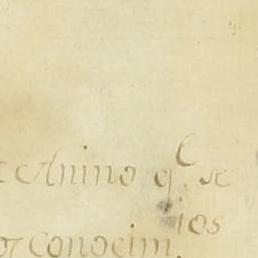 Animo q^e se
ios
conocim.